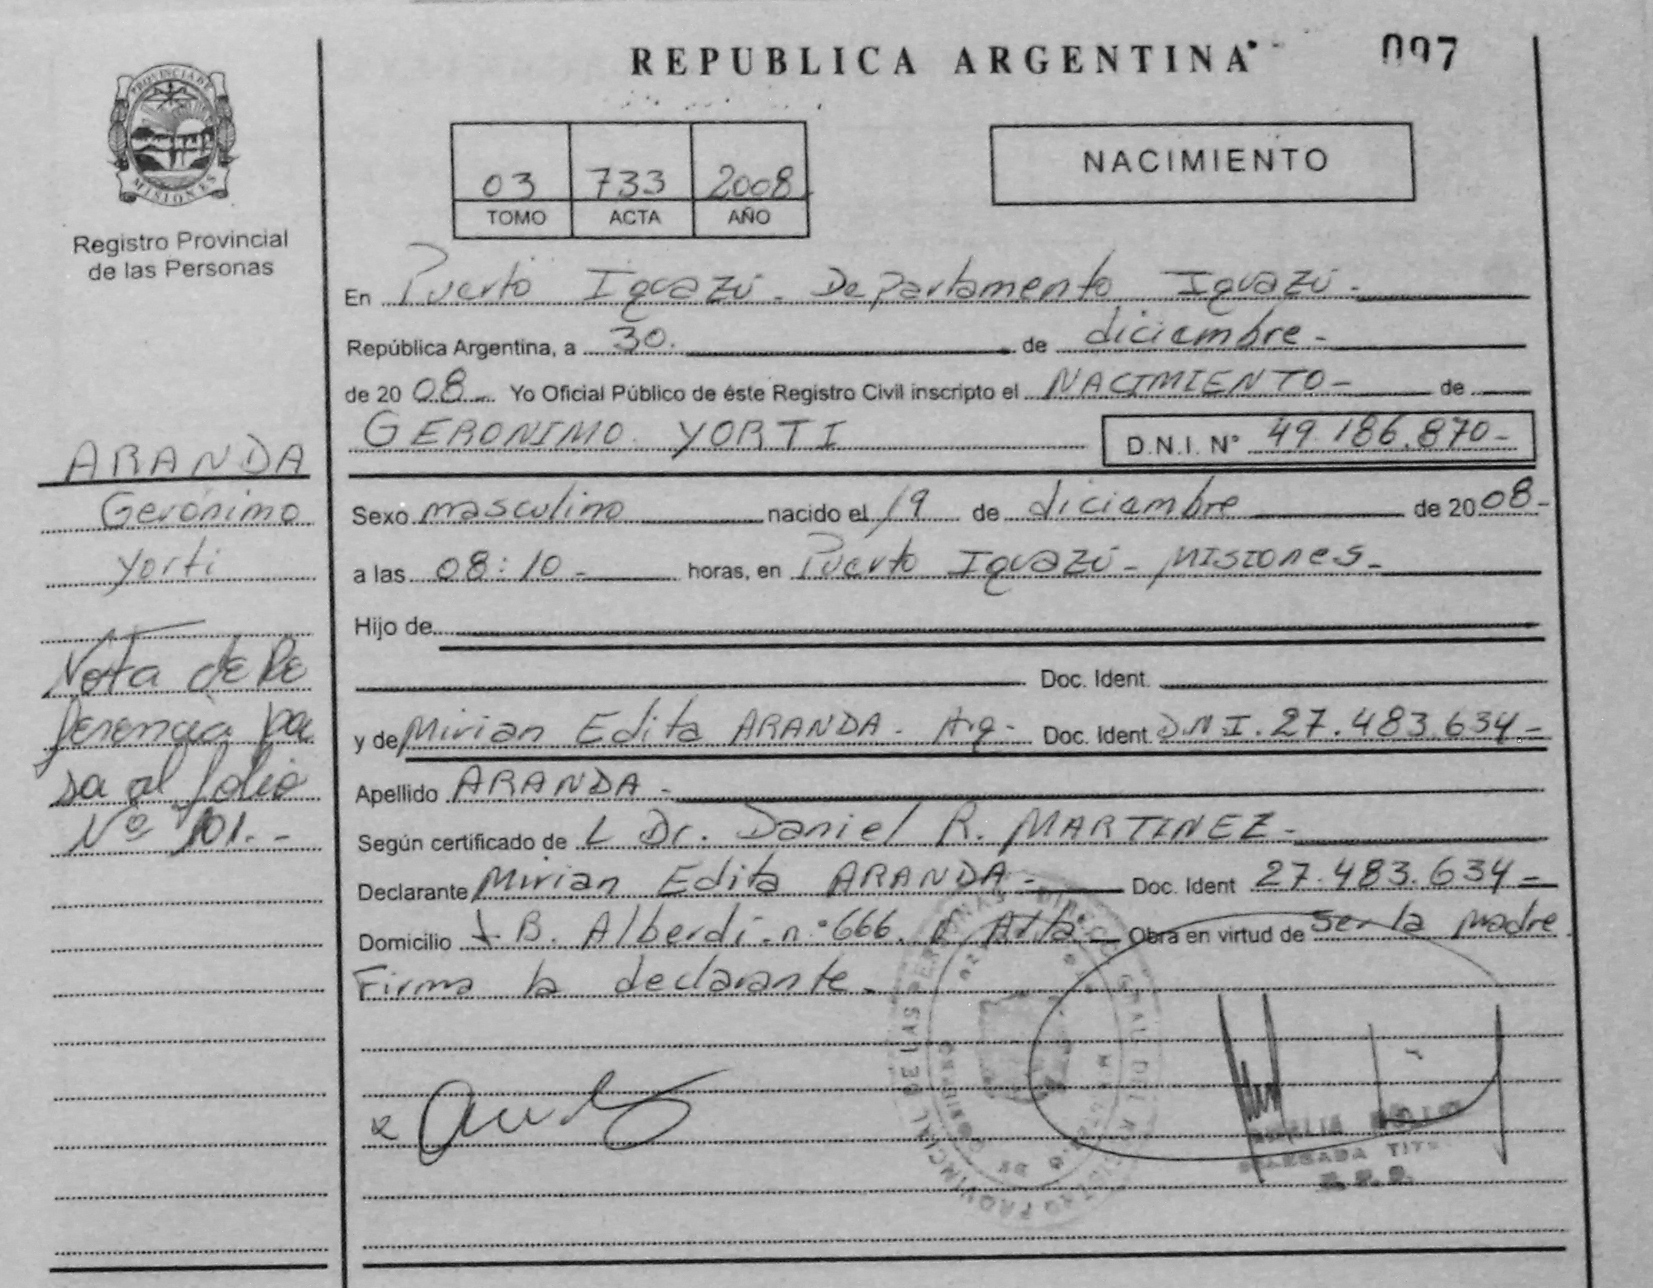 REPUBLICA ARGENTINA
097
PROVINCIA DE
MISIONES
Registro Provincial
de las Personas
03 733 2008
TOMO ACTA AÑO
NACIMIENTO
En Puerto Iguazú - Departamento Iguazú -
República Argentina, a 30. de diciembre -
de 20 08 - Yo Oficial Público de éste Registro Civil inscripto el NACIMIENTO - de
GERONIMO YORTI D.N.I. N° 49.186.870 -
Sexo masculino nacido el 19 de diciembre de 20 08 -
a las 08:10 - horas, en Puerto Iguazú - Misiones -
Hijo de
Doc. Ident.
y de Mirian Edita ARANDA - Arg - Doc. Ident. D.N.I. 27.483.634 -
Apellido ARANDA -
Según certificado de L Dr. Daniel R. MARTINEZ -
Declarante Mirian Edita ARANDA - Doc. Ident 27.483.634 -
Domicilio J. B. Alberdi - n° 666. Obra en virtud de ser la madre
Firma la declarante -
ARANDA
Gerónimo
Yorti
Nota de Re
ferencia pa
sa al folio
Nº 101. -
DELEGADA TIT